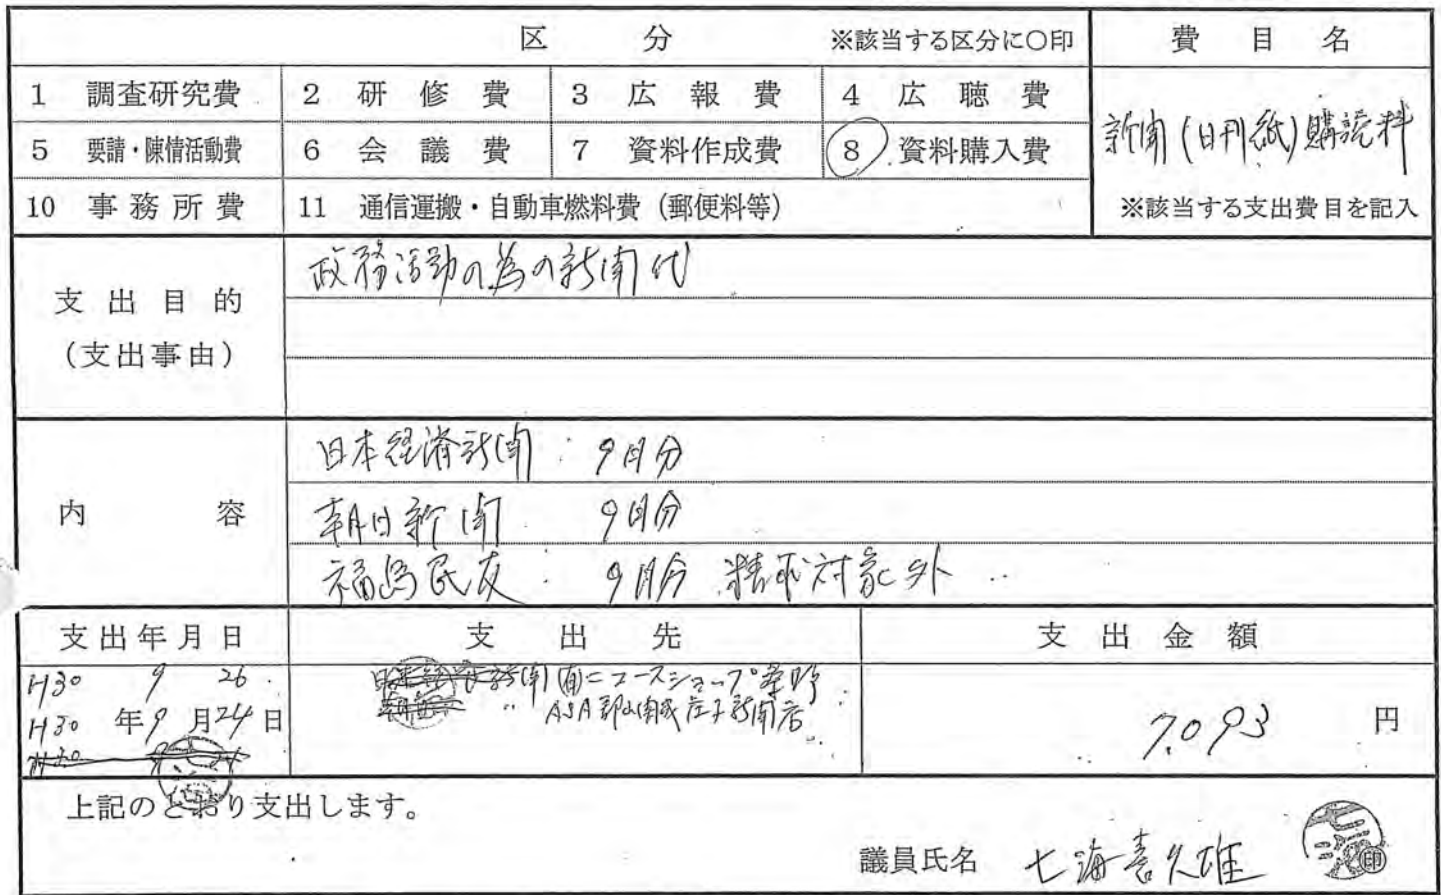 区 分 ※該当する区分に○印 費 目 名
1 調査研究費 2 研 修 費 3 広 報 費 4 広 聴 費
5 要請・陳情活動費 6 会 議 費 7 資料作成費 8 資料購入費
新聞(日刊紙)購読料
10 事務所費 11 通信運搬・自動車燃料費(郵便料等) ※該当する支出費目を記入
支出目的
(支出事由)
政務活動の為の新聞代
内 容
日本経済新聞: 9月分
朝日新聞 9月分
福島民友: 9月分 請求対象外
支出年月日 支 出 先 支 出 金 額
H30 9 26
H30 年9月24日
(有)ニュースショップ
ASA 新聞店
7,093 円
上記のとおり支出します。
議員氏名 七海喜久雄 印